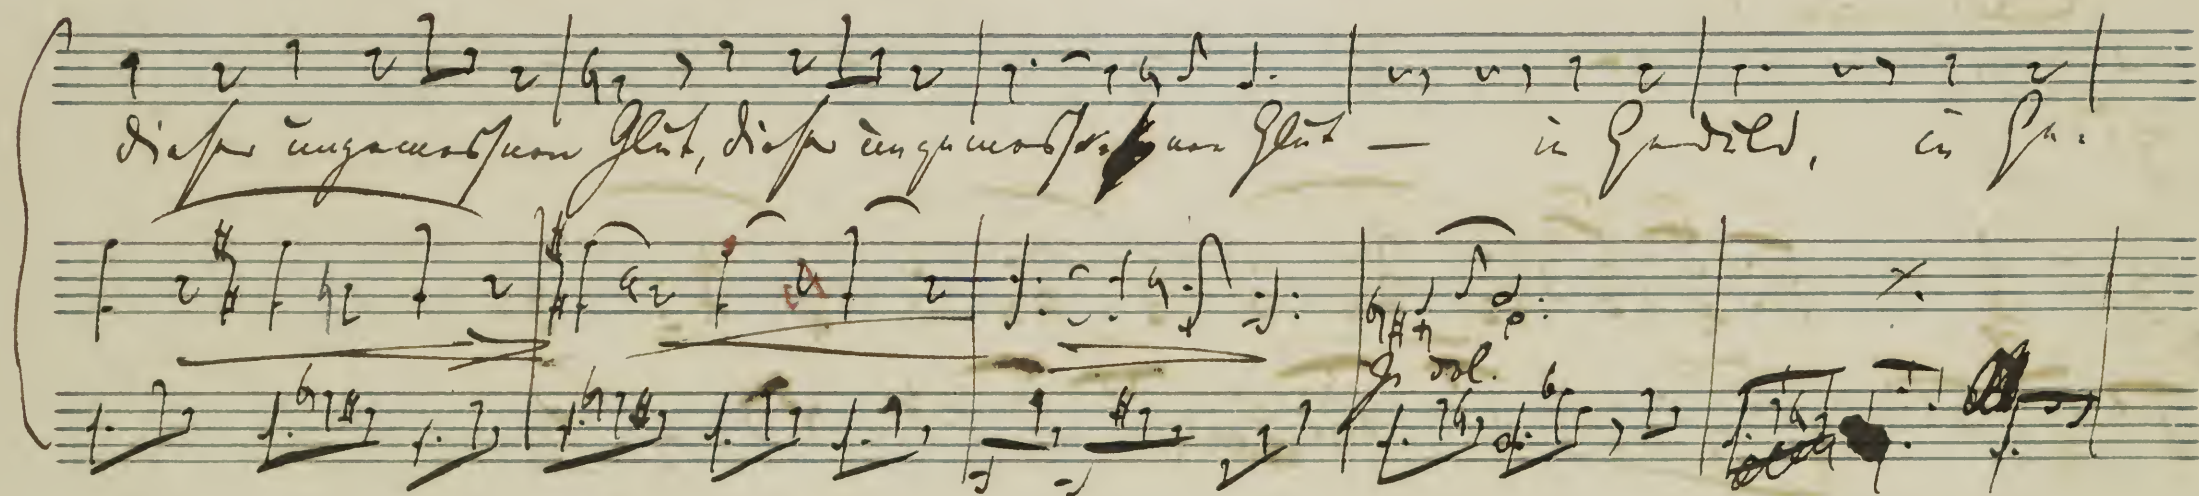 dieser ungemessnen Glut, dieser ungemessnen Glut — in Geduld, in Ge-
dol.